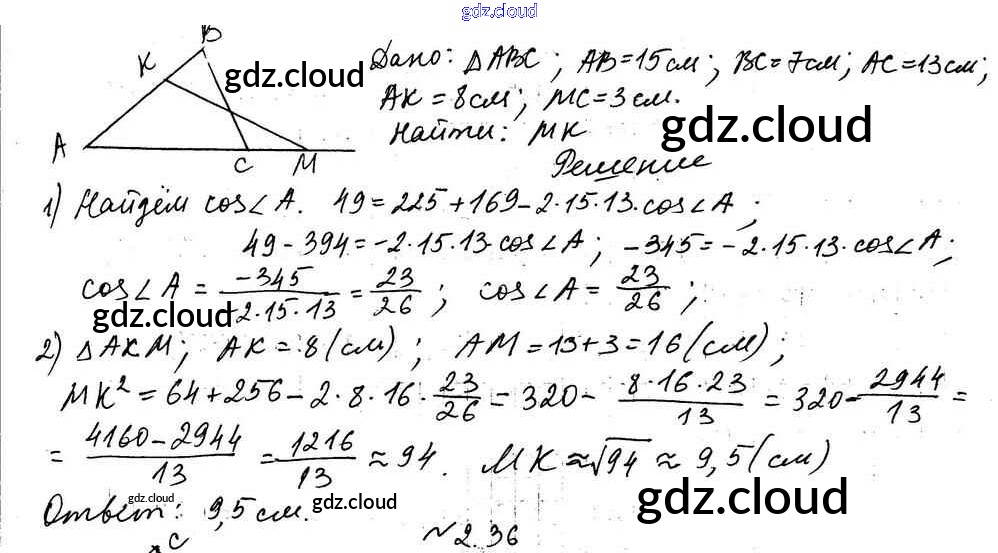 gdz.cloud
B
K
A
C
M
gdz.cloud
Дано: △ABC; AB=15см; BC=7см; AC=13см;
AK=8см; MC=3см.
Найти: MK
gdz.cloud
Решение
1) Найдём cos∠A. 49=225+169-2·15·13·cos∠A;
49-394=-2·15·13·cos∠A; -345=-2·15·13·cos∠A;
cos∠A = -345/-2·15·13 = 23/26; cos∠A = 23/26;
gdz.cloud
2) △AKM; AK=8(см); AM=13+3=16(см);
MK²=64+256-2·8·16·23/26=320-8·16·23/13=320-2944/13=
=4160-2944/13=1216/13≈94. MK≈√94≈9,5(см)
gdz.cloud
gdz.cloud
Ответ: 9,5 см.
gdz.cloud
C
№2.36